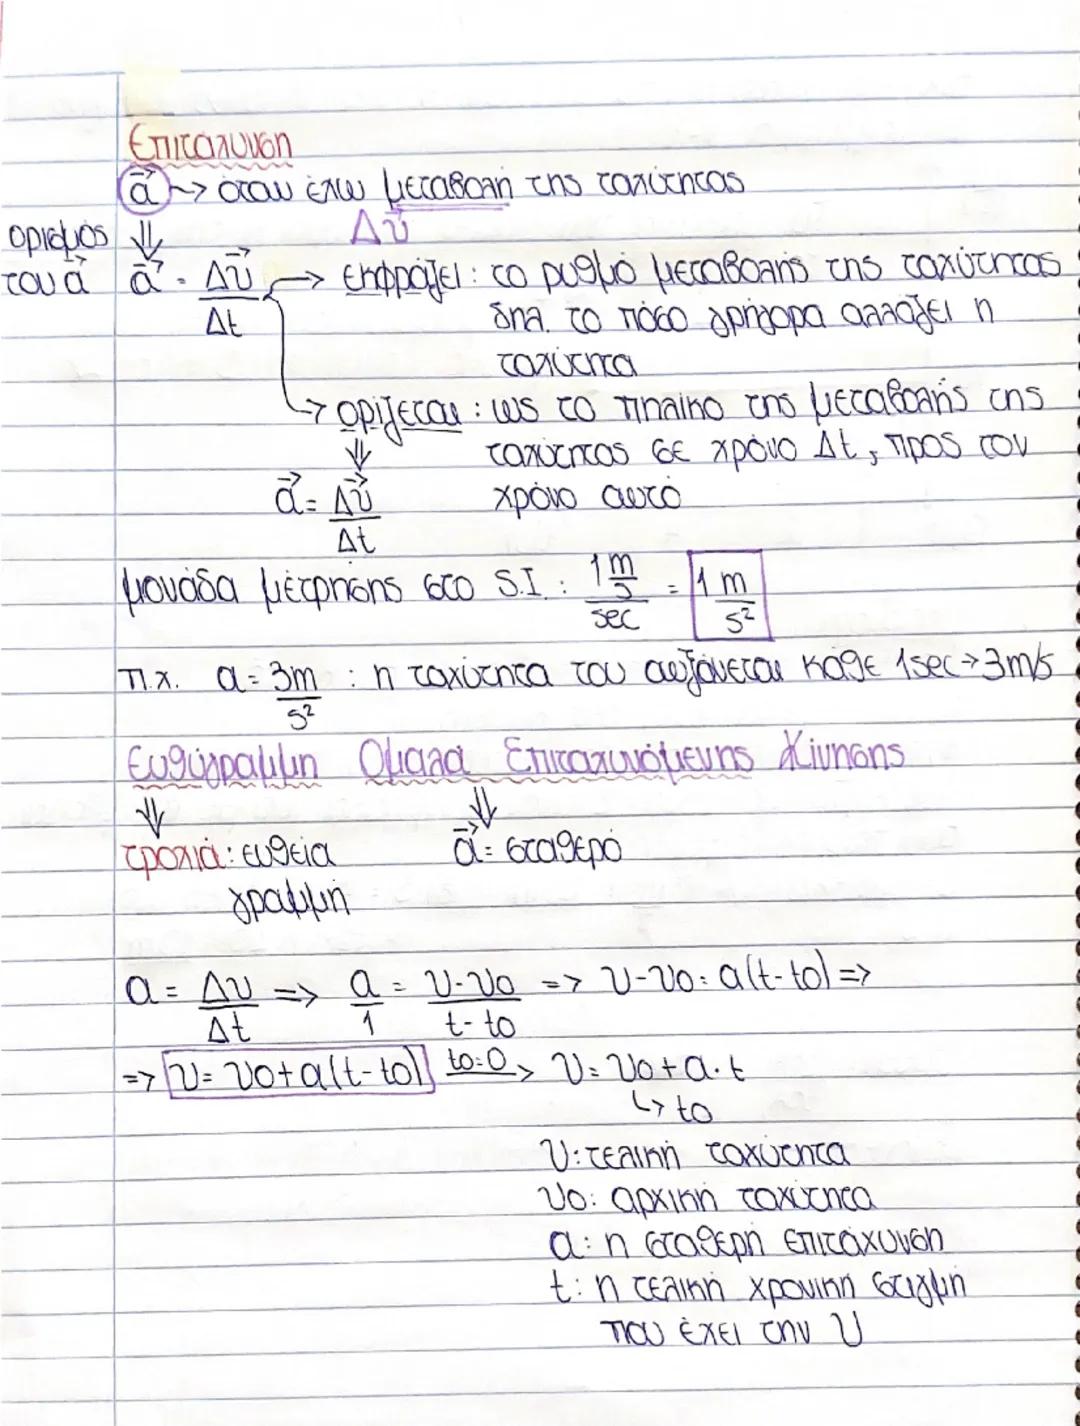 Επιτάχυνση
a⃗ ~> όταν έχω μεταβολή της ταχύτητας
Δυ⃗
ορισμός ⇓
του a⃗ a⃗ = Δυ⃗/Δt → εκφράζει: το ρυθμό μεταβολής της ταχύτητας
δηλ. το πόσο γρήγορα αλλάζει η
ταχύτητα
→ ορίζεται: ως το πηλίκο της μεταβολής της
⇓ ταχύτητας σε χρόνο Δt, προς τον
a⃗ = Δυ⃗/Δt χρόνο αυτό
μονάδα μέτρησης στο S.I.: 1 m/s / sec = 1 m/s²
π.χ. a = 3m/s² : η ταχύτητα του αυξάνεται κάθε 1sec → 3m/s
Ευθύγραμμη Ομαλά Επιταχυνόμενης Κίνησης
⇓ ⇓
τροχιά: ευθεία a⃗ = σταθερό
γραμμή
a = Δυ/Δt => a/1 = υ-υ0/t-t0 => υ-υ0 = a(t-t0) =>
=> υ = υ0+a(t-t0) t0=0 → υ = υ0+a·t
↳ t0
υ: τελική ταχύτητα
υ0: αρχική ταχύτητα
a: η σταθερή επιτάχυνση
t: η τελική χρονική στιγμή
που έχει την υ